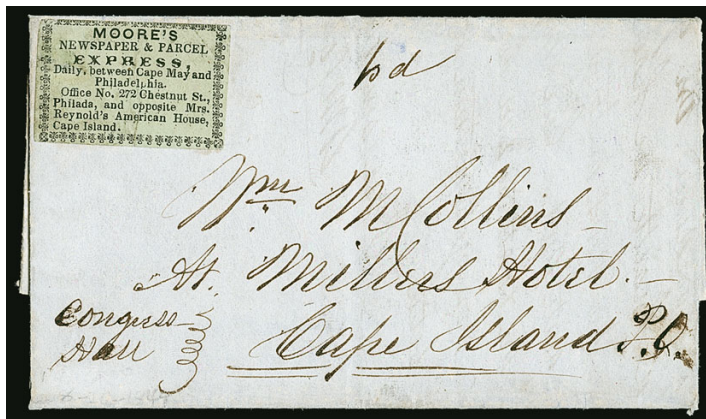 MOORE'S
NEWSPAPER & PARCEL
EXPRESS,
Daily, between Cape May and
Philadelphia.
Office No. 272 Chestnut St.,
Philada, and opposite Mrs.
Reynold's American House,
Cape Island.
pd
Wm M Collins
At Millers Hotel.
Congress
Hall
Cape Island